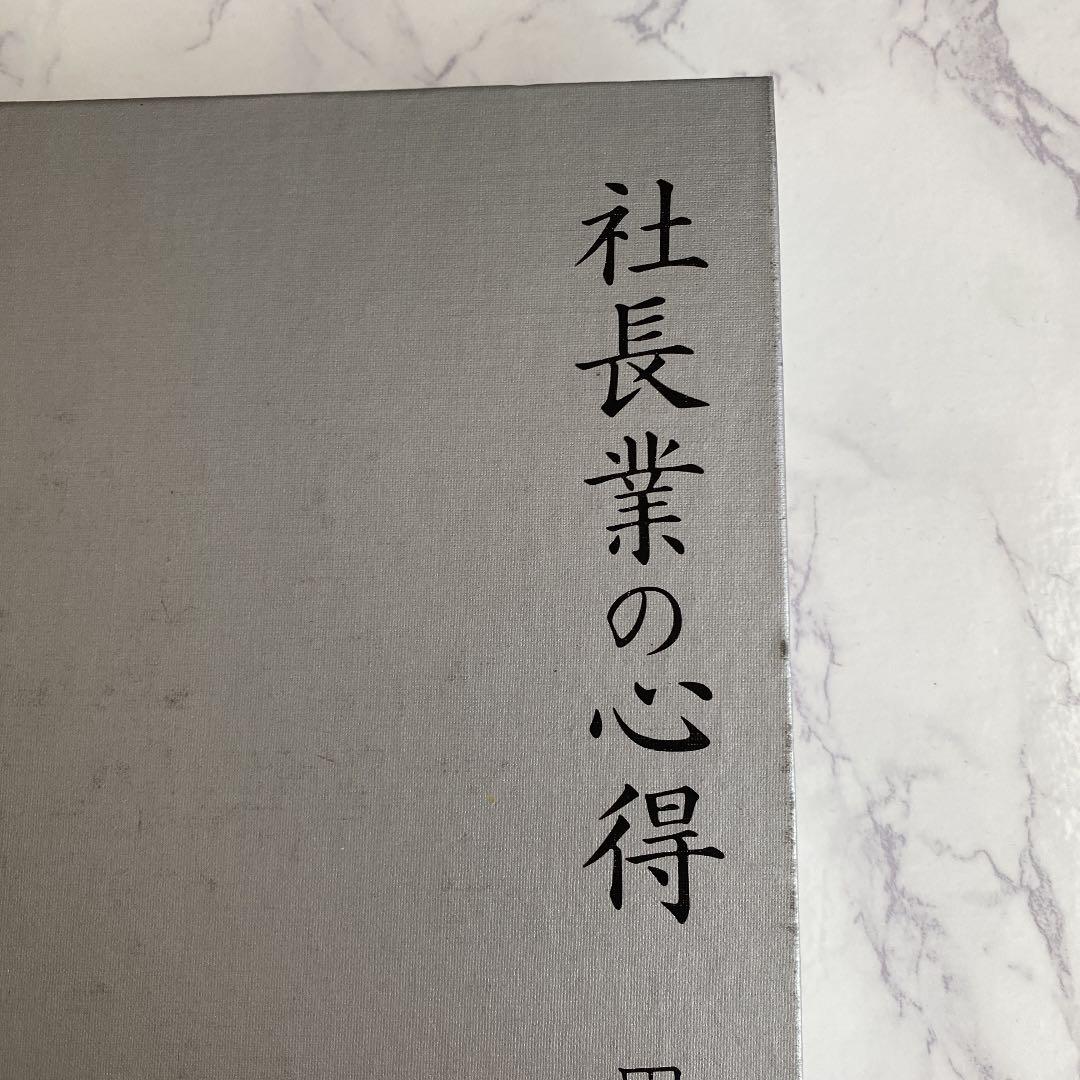 社長業の心得